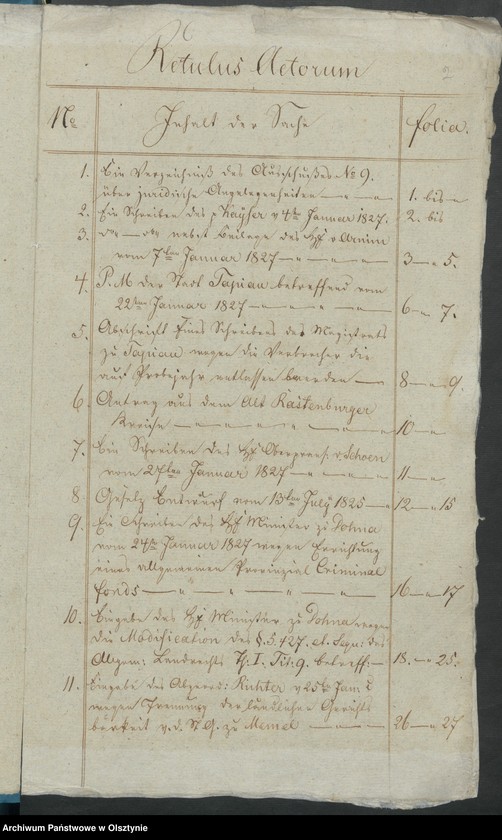 Rotulus Actorum
2
No. Inhalt der Sache folia.
1. Ein Verzeichniß des Ausschußes No 9.
über juridische Angelegenheiten — 1. bis —
2. Ein Schreiben des p Kayser v 4ten Januar 1827. 2. bis
3. dto — dto nebst Beilage des Hrn v Arnim
vom 7ten Januar 1827 — 3 — 5.
4. P. M der Stadt Tapiau betreffend vom
22ten Januar 1827 — 6 — 7.
5. Abschrift eines Schreibens des Magistrats
zu Tapiau wegen die Verbrecher die
auf Probejahr entlassen werden — 8 — 9.
6. Antrag aus dem Alt Rastenburger
Kreise — 10 —
7. Ein Schreiben des Hrn Oberpraes. v. Schoen
vom 27ten Januar 1827 — 11 —
8. Gesetz Entwurf vom 13ten July 1825 — 12 — 15
9. Ein Schreiben des Hrn Minister zu Dohna
vom 24ten Januar 1827 wegen Errichtung
eines allgemeinen Provinzial Criminal
fonds — 16 — 17
10. Eingabe des Hrn Minister zu Dohna wegen
die Modification des §. 5. 127. et. Sequ: des
Allgem: Landrechts Th. I. Tit: 9. betreff: — 18. — 25.
11. Eingabe des Abgeord: Richter v 25ten Jan:
wegen Trennung der ländlichen Gerichts
barkeit v. d. St. G. zu Memel — 26 — 27
Archiwum Państwowe w Olsztynie